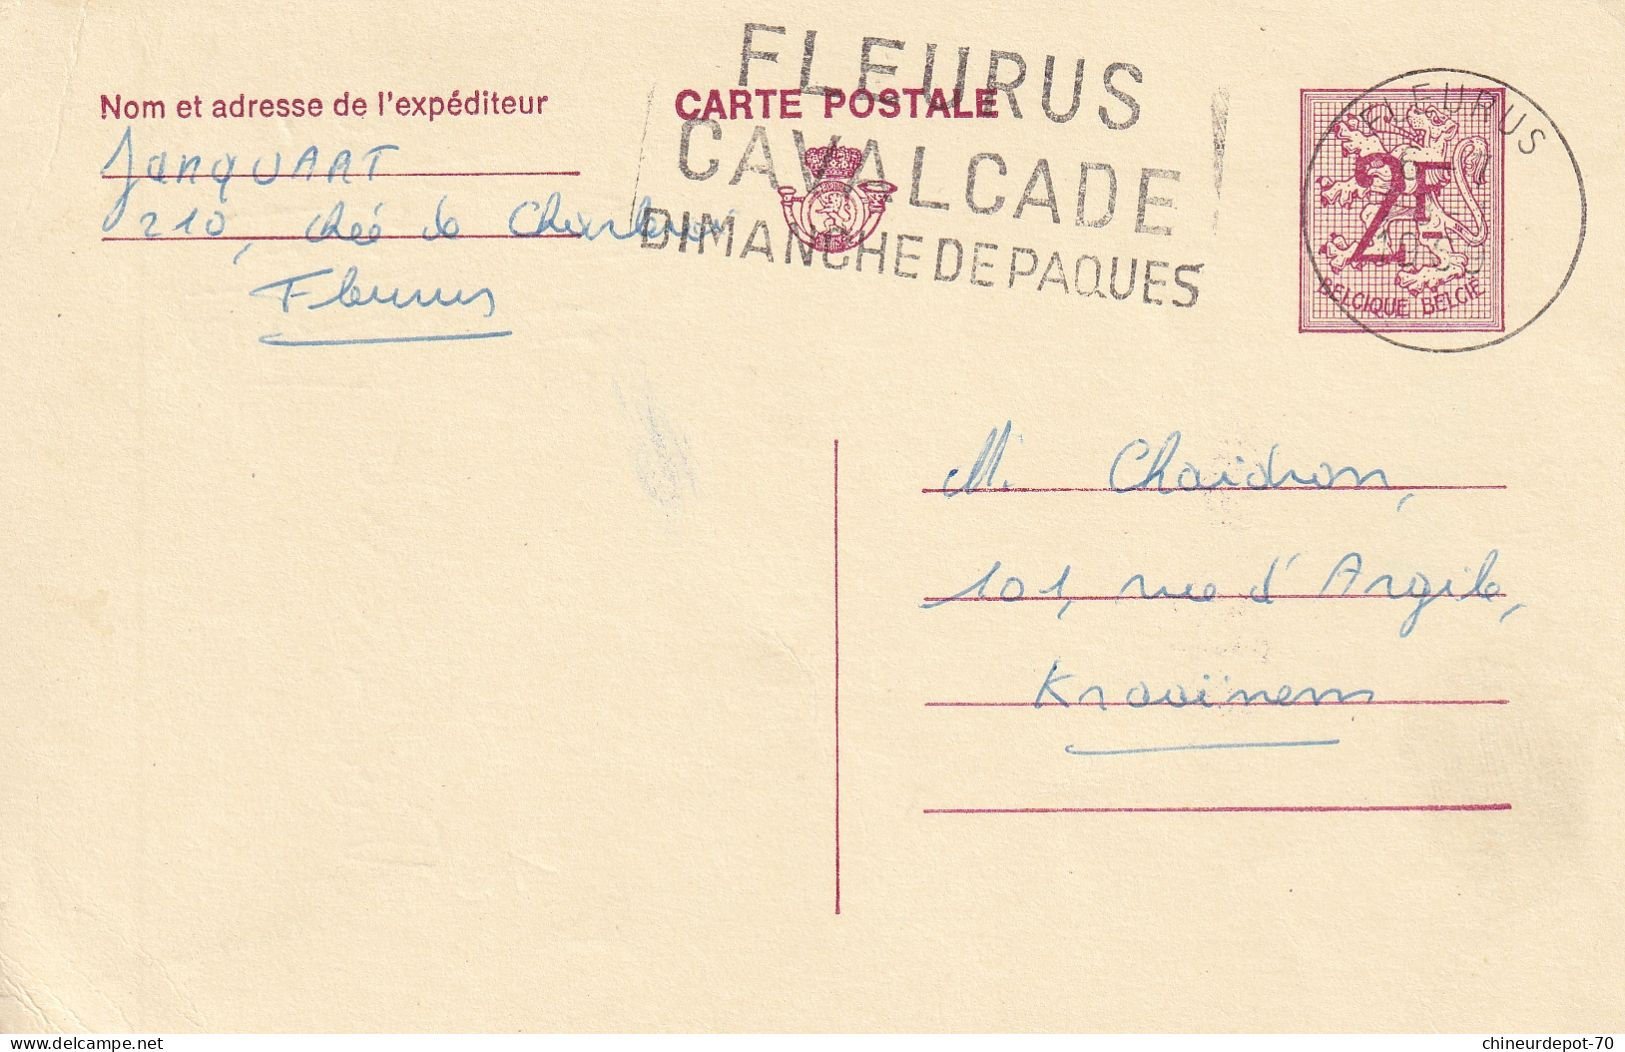 FLEURUS
CAVALCADE
DIMANCHE DE PAQUES
Nom et adresse de l'expéditeur
CARTE POSTALE
JANQUART
210, chée de Charleroi
Fleurus
FLEURUS
2F
BELGIQUE BELGIË
M. Chaidron,
101, rue d'Argile,
Kraainem
www.delcampe.net
chineurdepot-70